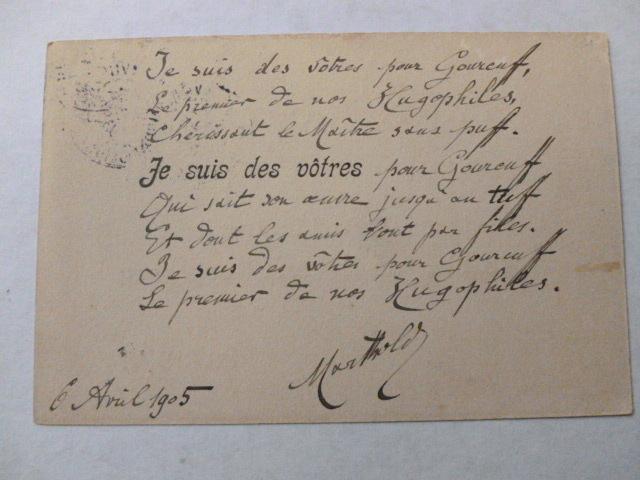 Je suis des vôtres pour Gourcuff,
Le premier de nos Hugophiles,
Chérissant le Maître sans puff.
Je suis des vôtres pour Gourcuff
Qui sait son œuvre jusqu'au tuff
Et dont les amis vont par files.
Je suis des vôtres pour Gourcuff
Le premier de nos Hugophiles.
Marthold
6 Avril 1905